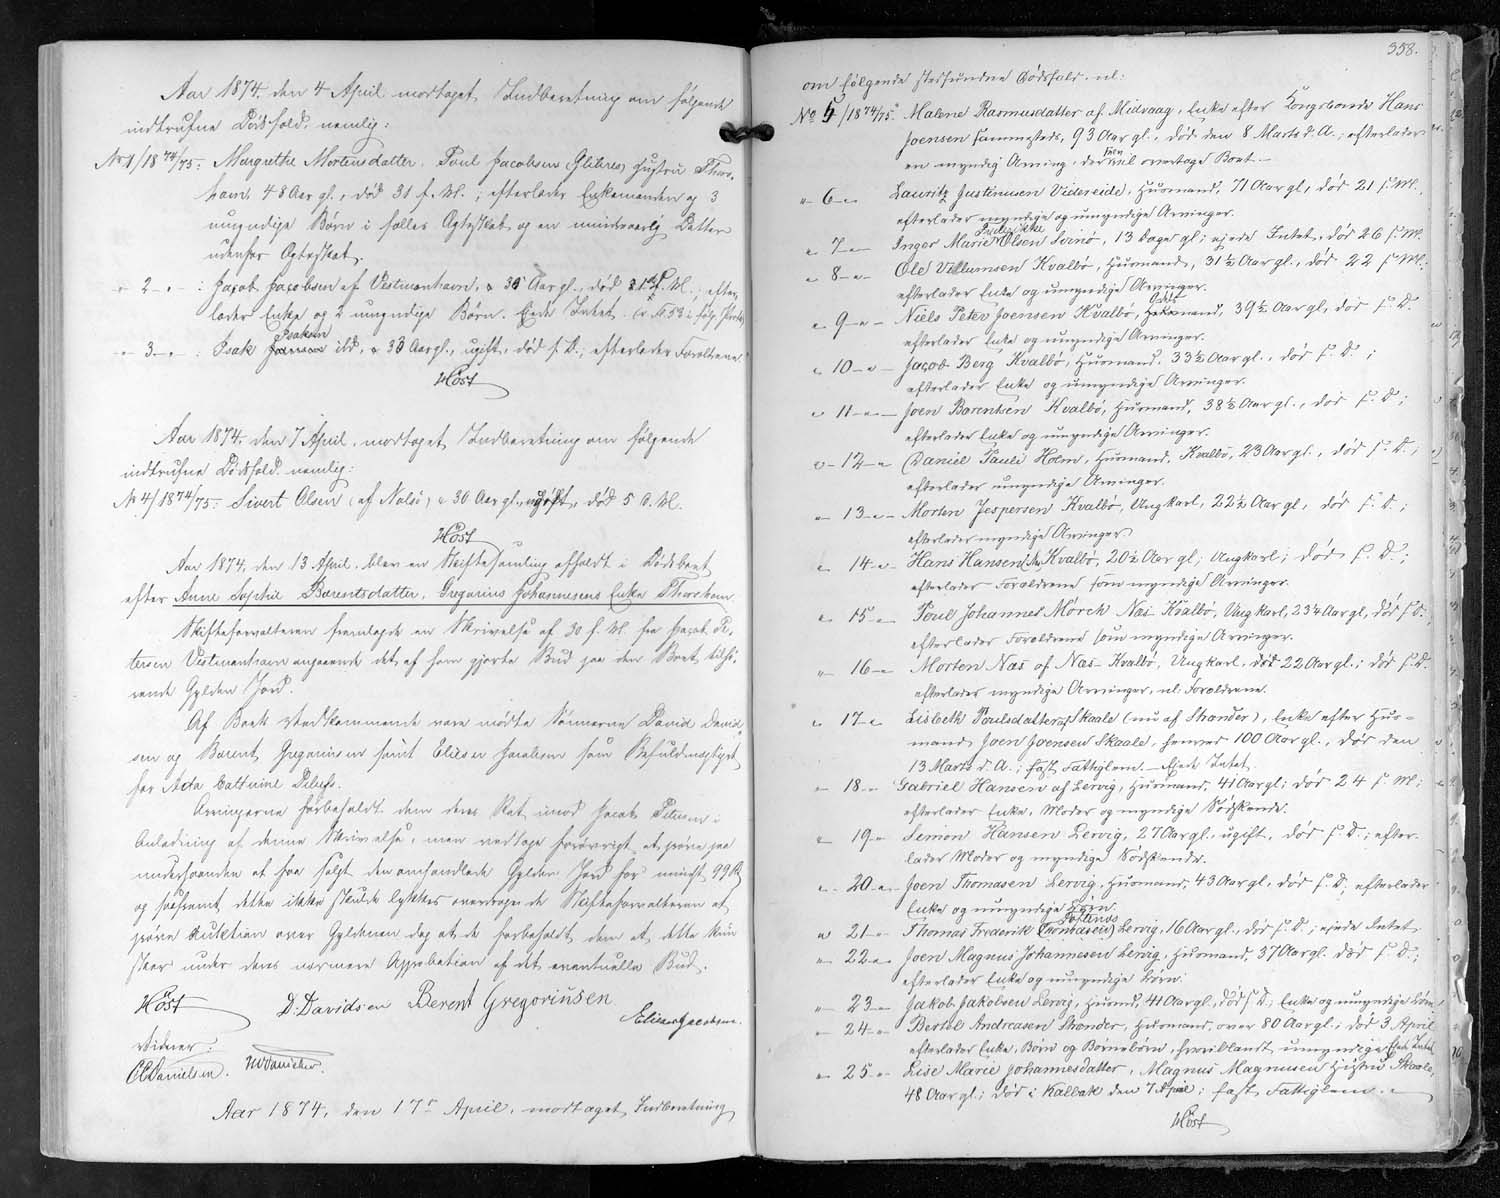 Aar 1874. den 4 April modtaget Indberetning om følgende
indtrufne Dødsfald, nemlig:
No 1/1874/75. Margrethe Mortensdatter. Poul Jacobsens Hustru Thors-
havn, 48 Aar gl., død 31 f. M.; efterlader Enkemanden og 3
umyndige Børn i fælles Ægteskab og en mindreaarig Datter
udenfor Ægteskab.
- 2 - : Jacob Jacobsen af Vestmanhavn, 35 Aar gl., død f. M.; efter-
lader Enke og 2 umyndige Børn. Eiede Intet.
Isaksen
- 3 - : Isak ibd, 33 Aar gl., ugift, død s. D.; efterlader Forældrene.
Høst
Aar 1874. den 7 April. modtaget Indberetning om følgende
indtrufne Dødsfald nemlig:
No 4/1874/75. Sivert Olsen (af Nolsø) 30 Aar gl., ugift, død 5 d. M.
Høst
Aar 1874, den 13 April. blev en Skiftesamling afholdt i Dødsboet
efter Anne Sophie Barentsdatter, Gregorius Johannesens Enke Thorshavn.
Skifteforvalteren fremlagde en Skrivelse af 30 f. M. fra Jacob Pe-
tersen Vestmanhavn angaaende det af ham gjorte Bud paa den Boet tilhø-
rende Gylden Jord.
Af Boets Vedkommende vare mødte Sønnerne David David-
sen og Barent Gregoriusen samt Elieser Jacobsen som Befuldmægtiget
for Ada Cathrine
Arvingerne forbeholdt dem deres Ret imod Jacob Petersen i
Anledning af denne Skrivelse, men vedtoge forøvrigt at prøve paa
underhaanden at faa solgt den omhandlede Gylden Jord for mindst 99 Rd
og saafremt dette ikke skulde lykkes overdroge de Skifteforvalteren at
prøve Auktion over Gyldenen dog at de forbeholdt dem at dette kun
skeer under deres nærmere Approbation af det eventuelle Bud.
Høst D. Davidsen Berent Gregoriusen
Elieser Jacobsen.
Vidner:
Danielsen.
Aar 1874, den 17de April, modtaget Indberetning
358.
om følgende stedfundne Dødsfald. nl:
No 5/1874/75. Malene Rasmusdatter af Midvaag, Enke efter Kongsbonde Hans
Joensen sammesteds, 93 Aar gl., død den 8 Marts d. A.; efterlader
en myndig Arving, der selv overtage Boet.
- 6 - Lauritz Justinusen Videreide, Huusmand, 71 Aar gl, død 21 f. M.
efterlader myndige og umyndige Arvinger.
Frederikke
- 7 - Inger Marie Olsen Svinø, 13 Dage gl; ejede Intet, død 26 f. M.
- 8 - Ole Villumsen Kvalbø, Huusmand, 31½ Aar gl., død 22 f. M.;
efterlader Enke og umyndige Arvinger.
- 9 - Niels Peter Joensen Kvalbø, 39½ Aar gl, død s. D.
efterlader Enke og umyndige Arvinger.
- 10 - Jacob Berg Kvalbø, Huusmand, 33½ Aar gl., død s. D.;
efterlader Enke og umyndige Arvinger.
- 11 - Joen Barentsen Kvalbø, Huusmand, 38½ Aar gl., død s. D.;
efterlader Enke og umyndige Arvinger.
- 12 - Daniel Pauli Holm, Huusmand, Kvalbø, 23 Aar gl., død s. D.;
efterlader umyndige Arvinger.
- 13 - Morten Jespersen Kvalbø, Ungkarl, 22½ Aar gl, død s. D.;
efterlader myndige Arvinger
- 14 - Hans Hansen Kvalbø, 20½ Aar gl; Ungkarl; død s. D.;
efterlader Forældrene som myndige Arvinger.
- 15 - Poul Johannes Mörch Næs Kvalbø, Ungkarl, 23¼ Aar gl, død s. D.;
efterlader Forældrene som myndige Arvinger.
- 16 - Morten Næs af Næs Kvalbø, Ungkarl, 22 Aar gl.; død s. D.
efterlader myndige Arvinger, nl. Forældrene.
- 17 - Lisbeth Poulsdatter, Skaale (nu af Strænder), Enke efter Huus-
mand, Joen Joensen Skaale, henved 100 Aar gl., død den
13 Marts d. A.; fast Fattiglem. Ejede Intet.
- 18 - Gabriel Hansen af Lervig, Huusmand, 41 Aar gl; død 24 f. M;
efterlader Enke, Moder og myndige Sødskende.
- 19 - Semion Hansen Lervig, 27 Aar gl, ugift, død s. D.; efter-
lader Moder og myndige Sødskende.
- 20 - Joen Thomasen Lervig, Huusmand, 43 Aar gl, død s. D, efterlader
Enke og umyndige Børn.
- 21 - Thomas Frederik Lervig, 16 Aar gl., død s. D.; ejede Intet
- 22 - Joen Magnus Johannesen Lervig, Huusmand, 37 Aar gl. død s. D.;
efterlader Enke og umyndige Børn.
- 23 - Jakob Jakobsen Lervig, Huusmd, 41 Aar gl., død s. D; Enke og umyndige Børn
- 24 - Bertel Andreasen Strænder, Huusmand, over 80 Aar gl.; død 3 April
efterlader Enke, Børn og Børnebørn, hvoriblandt umyndige (Ejede Intet)
- 25 - Lise Marie Johannesdatter, Magnus Magnusen Hustru Skaale,
48 Aar gl; død i Kalbak den 7 April; fast Fattiglem.
Høst